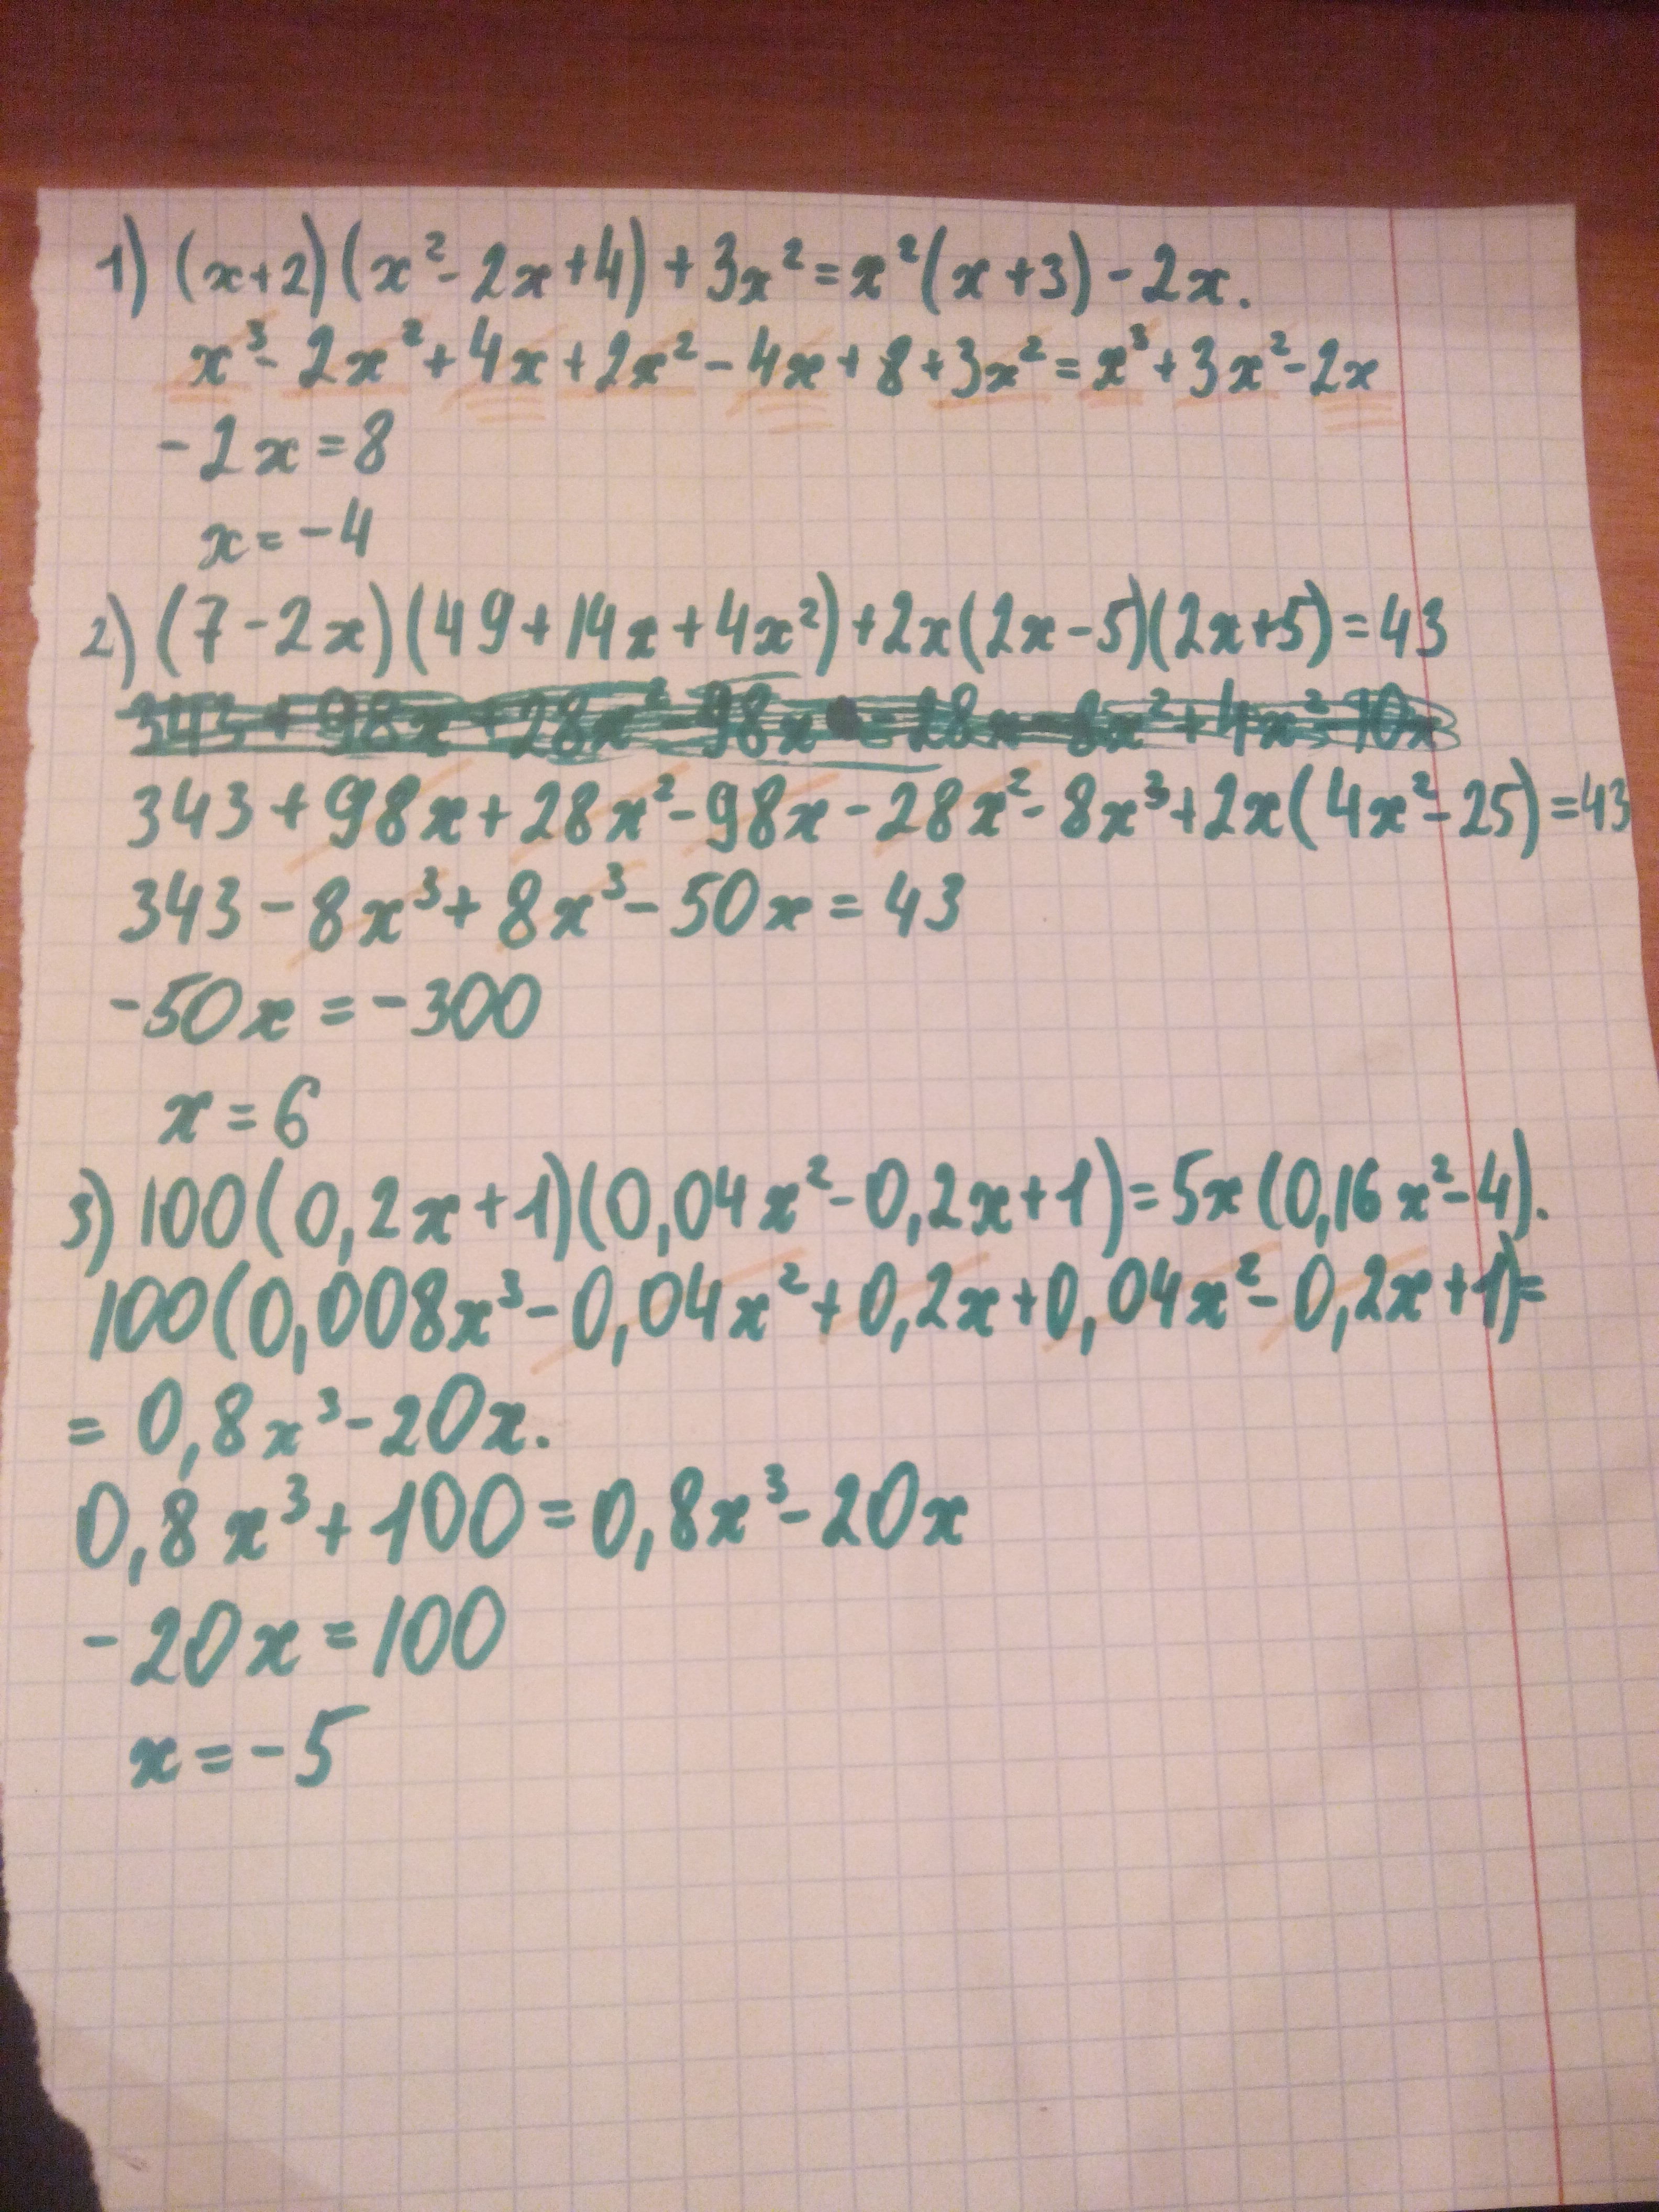 1) (x+2)(x²-2x+4)+3x²=x²(x+3)-2x.
x³-2x²+4x+2x²-4x+8+3x²=x³+3x²-2x
-2x=8
x=-4
2) (7-2x)(49+14x+4x²)+2x(2x-5)(2x+5)=43
343+98x+28x²-98x-28x²-8x³+2x(4x²-25)=43
343-8x³+8x³-50x=43
-50x=-300
x=6
3) 100(0,2x+1)(0,04x²-0,2x+1)=5x(0,16x²-4).
100(0,008x³-0,04x²+0,2x+0,04x²-0,2x+1)=
=0,8x³-20x.
0,8x³+100=0,8x³-20x
-20x=100
x=-5